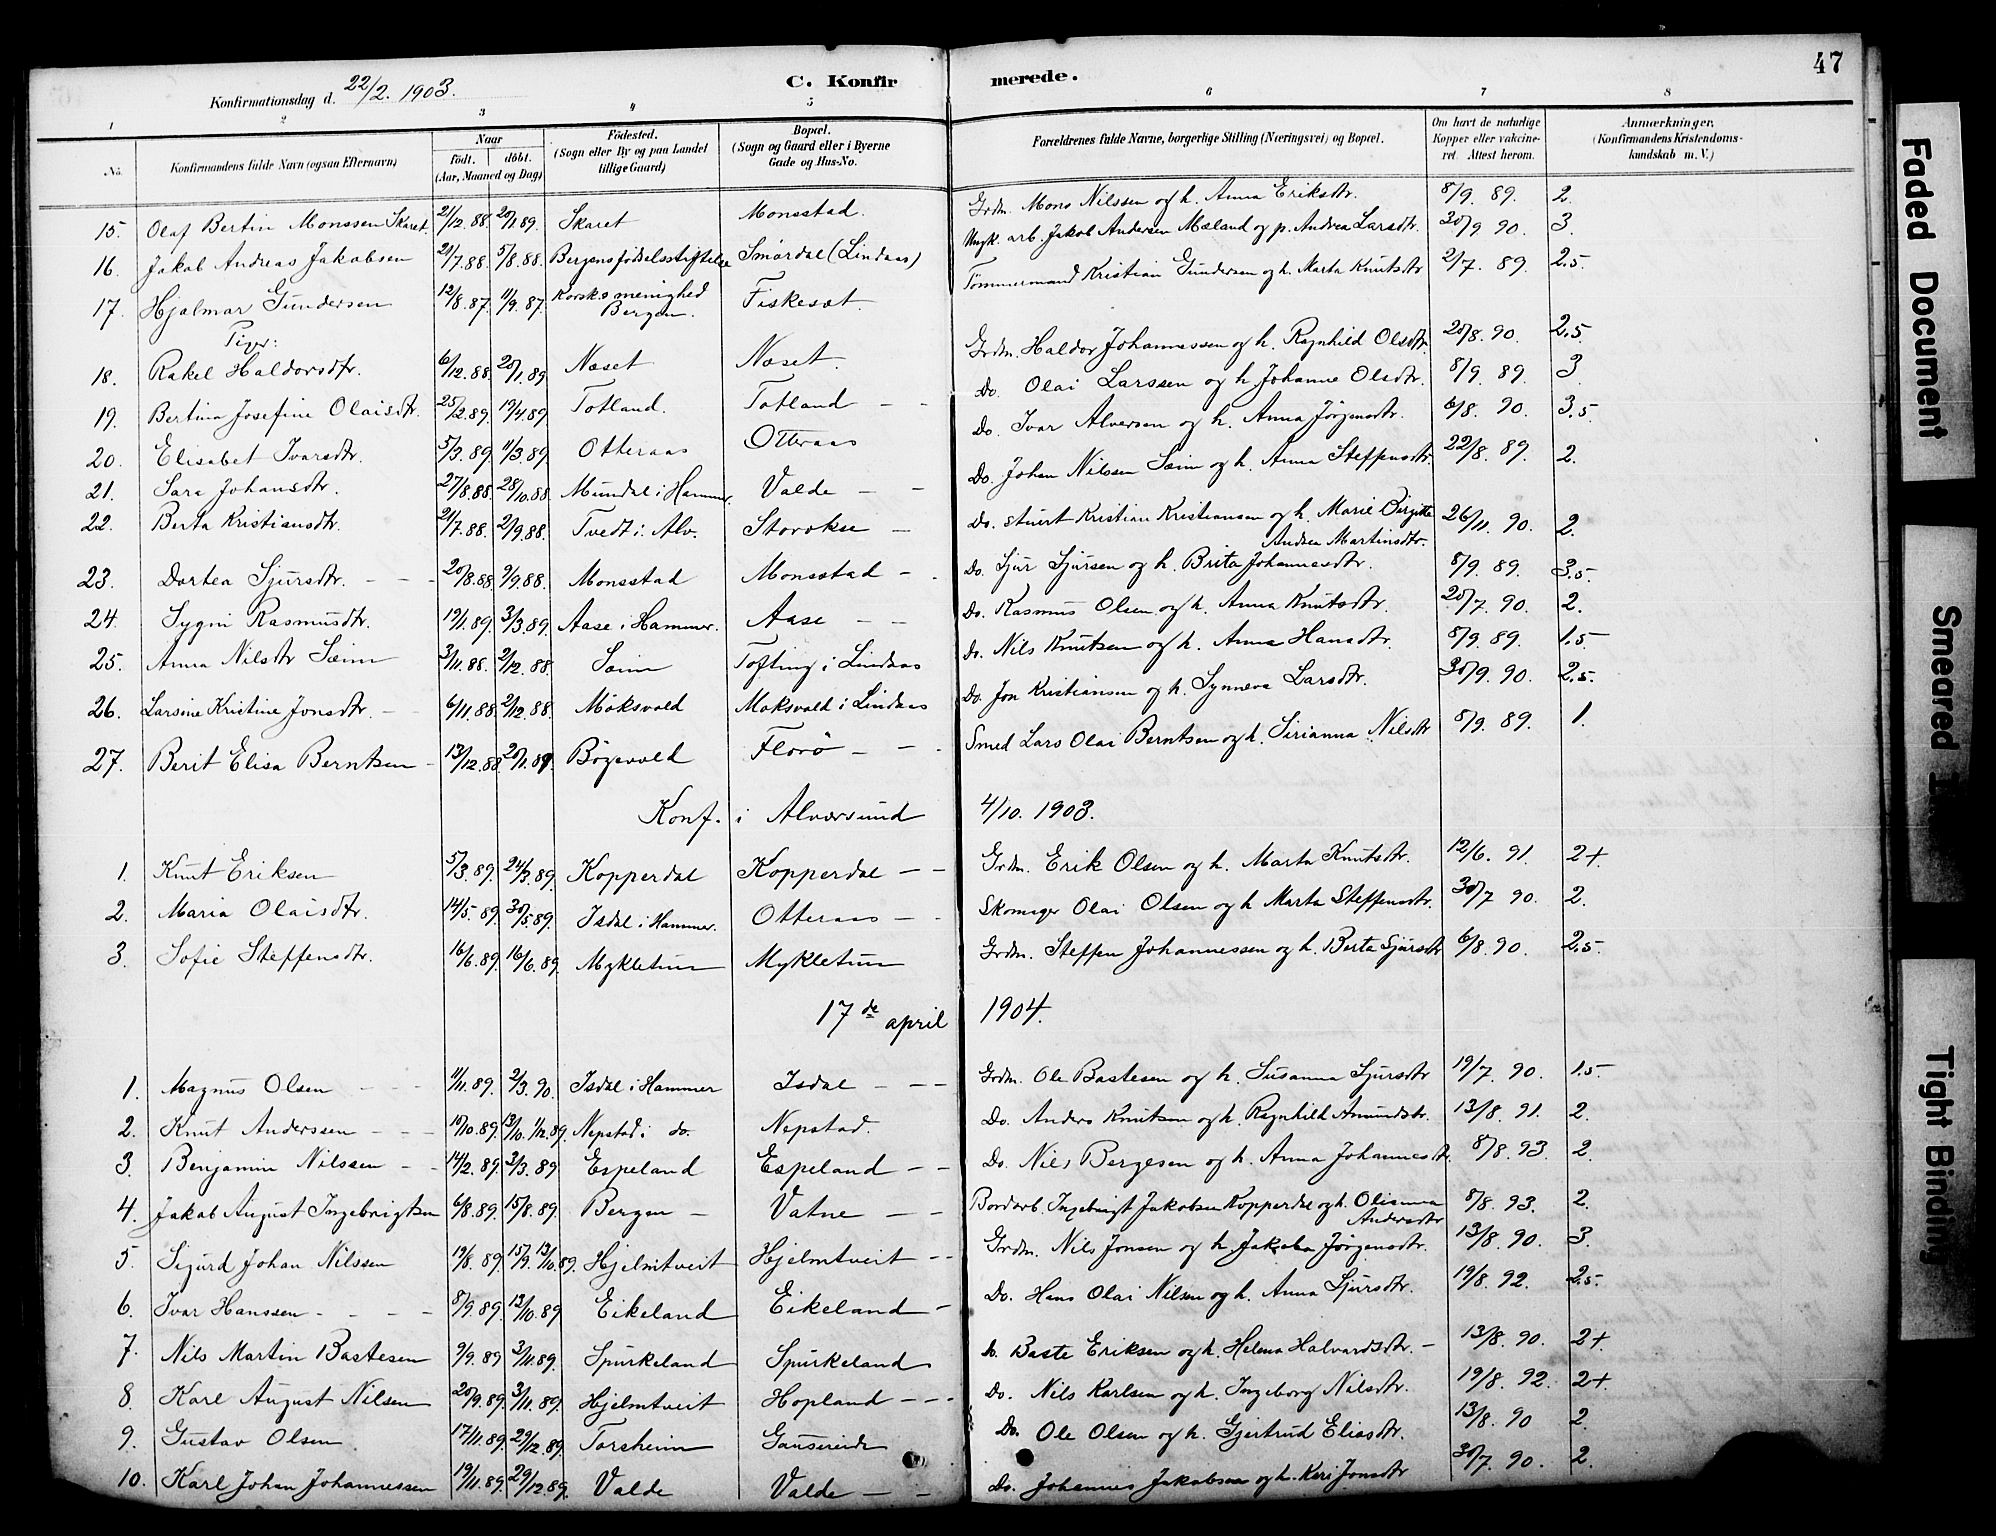 47
C. Konfirmerede.
Konfirmationsdag d. 22/2. 1903.
1 2 3 4 5 6 7 8
No. Konfirmandens fulde Navn (ogsaa Efternavn) Naar födt. döbt. (Aar, Maaned og Dag) Födested. (Sogn eller By og paa Landet tillige Gaard) Bopæl. (Sogn og Gaard eller i Byerne Gade og Hus-No. Forældrenes fulde Navne, borgerlige Stilling (Næringsvei) og Bopæl. Om havt de naturlige Kopper eller vaccineret. Attest herom. Anmærkninger. (Konfirmandens Kristendomskundskab m. V.)
15. Olaf Bertin Monssen Skaret. 21/12.88. 20/1.89. Skaret Monsstad. Grdm. Mons Nilssen og h. Anna Eriksdtr. 8/9. 89. 2.
16. Jakob Andreas Jakobsen 21/7.88. 5/8.88. Bergens födselsstiftelse Smørdal (Lindaas) Ungk. arb. Jakob Andersen Mæland og p. Andrea Larsdtr. 30/9. 90. 3.
17. Hjalmar Gundersen 12/8.87. 11/9.87. Korsk. menighed Bergen. Fiskesæt. Tømmermand Kristian Gundersen og h. Marta Knutsdtr 2/7. 89. 2.5
Piger:
18. Rakel Haldorsdtr. 6/12.88. 20/1.89 Næset Næset. Grdm. Haldor Johannessen og h. Ragnhild Olsdtr. 20/8. 90. 2.5
19. Bertina Josefine Olaisdtr. 25/2.89. 19/4.89 Totland. Totland Do. Olai Larssen og h. Johanne Olsdtr. 8/9. 89. 3
20. Elisabet Ivarsdtr. 5/3.89. 11/3.89. Otteraas Otteraas Do. Ivar Alversen og h. Anna Jørgensdtr. 6/8. 90. 3.5
21. Sara Johansdtr. 27/8.88. 28/10.88. Mundal i Hammer. Valde Do. Johan Nilssen Sæim og h. Anna Steffensdtr. 22/8. 89. 2.
22. Berta Kristiansdtr. 21/7.88. 2/9.88. Tvedt i Alv. Storokse Do. stuert Kristian Kristiansen og h. Marie Birgitte Andrea Martinsdtr. 26/11. 90. 2.
23. Dortea Sjursdtr. 20/8.88. 9/9.88. Monsstad Monsstad Do. Sjur Sjursen og h. Brita Johannesdtr. 8/9. 89. 3.5
24. Sygni Rasmusdtr. 19/1.89. 3/3.89. Aase i Hammer. Aase Do. Rasmus Olsen og h. Anna Knutsdtr. 20/7. 90. 2.
25. Anna Nilsdtr Sæim 3/11.88. 2/12.88. Sæim Tofting i Lindaas Do. Nils Knutsen og h. Anna Hansdtr. 8/9. 89. 1.5
26. Larsine Kristine Jonsdtr. 6/11.88. 2/12.88. Moksvold Moksvold i Lindaas Do. Jon Kristiansen og h. Synneva Larsdtr. 30/9. 90. 2.5.
27. Berit Elisa Berntsen 13/12.88. 20/1.89. Bøgevold Florö Smed Lars Olai Berntsen og h. Sirianna Nilsdtr 8/9. 89. 1.
Konf. i Alversund 4/10. 1903.
1. Knut Eriksen 5/3.89. 24/3.89. Kopperdal Kopperdal Grdm. Erik Olsen og h. Marta Knutsdtr. 12/6. 91. 2+.
2. Maria Olaisdtr. 14/5.89. 30/5.89. Isdal i Hammer. Otteraas Skomager Olai Olsen og h. Marta Steffensdtr. 30/7 90. 2.
3. Sofie Steffensdtr. 16/6.89. 16/6.89. Mykletun Mykletun Grdm. Steffen Johannessen og h. Berta Sjursdtr 6/8. 90. 2.5
17de april 1904.
1. Magnus Olsen 11/11.89. 2/3.90. Isdal i Hammer Isdal Grdm. Ole Bastesen og h. Susanna Sjursdtr 19/7. 90. 1.5
2. Knut Anderssen 10/10.89. 13/10. 1/12.89. Nepstad i do. Nepstad. Do. Anders Knutsen og h. Ragnhild Amundsdtr. 13/8. 91. 2.
3. Benjamin Nilssen 14/2.89. 3/3.89 Espeland Espeland Do. Nils Bergesen og h. Anna Johannesdtr. 8/8. 93. 2.
4. Jakob August Ingebrigtsen 6/8.89. 15/8.89. Bergen Vatne Bordarb. Ingebrigt Jakobsen Kopperdal og h. Olianna Andersdtr 8/8. 93. 2.
5. Sigurd Johan Nilssen 19/8.89. 15/9. 13/10.89. Hjelmtveit Hjelmtveit Grdm. Nils Jonsen og h. Jakoba Jørgensdtr. 13/8. 90. 3.
6. Ivar Hanssen 8/9.89. 13/10.89 Eikeland Eikeland Do. Hans Olai Nilsen og h. Anna Sjursdtr. 19/8. 92. 2.5
7. Nils Martin Bastesen 9/9.89 3/11.89. Spurkeland Spurkeland Do. Baste Eriksen og h. Helena Halvardsdtr. 13/8. 90. 2+
8. Karl August Nilsen 20/9.89. 3/11.89. Hjelmtveit Hopland Do. Nils Karlsen og h. Ingeborg Nilsdtr. 19/8. 92. 2+.
9. Gustav Olsen 17/11.89. 29/12.89. Torsheim Do. Ole Olsen og h. Gjertrud Eliasdtr. 13/8. 90 2.
10. Karl Johan Johannessen 19/11.89. 29/12.89. Valde Valde Do. Johannes Jakobsen og h. Kari Jonsdtr 30/7. 90. 2.
Faded Document
Smeared
Tight Binding